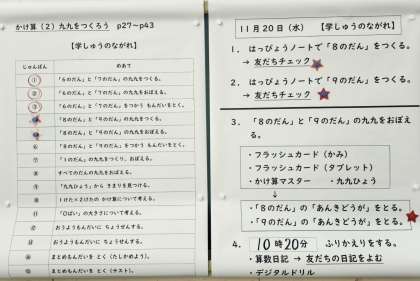 かけ算（2）九九をつくろう　p27～p43
【学しゅうのながれ】
じゅんばん　めあて
①　「6のだん」と「7のだん」の九九をつくる。
②　「6のだん」と「7のだん」の九九をおぼえる。
③　「6のだん」「7のだん」をつかう もんだいをとく。
「8のだん」と「9のだん」の九九をつくる。
「8のだん」と「9のだん」の九九をおぼえる。
⑥　「8のだん」「9のだん」をつかう もんだいをとく。
⑦　「1のだん」の九九をつくり、おぼえる。
⑧　すべてのだんの九九をおぼえる。
⑨　「九九ひょう」から きまりを見つける。
⑩　1けた×2けたの かけ算について考える。
⑪　「〇ばい」の大きさについて考える。
⑫　おうようもんだいに ちょうせんする。
⑬　おうようもんだいに ちょうせんする。
⑭　まとめもんだいを とく（たしかめよう）。
⑮　まとめもんだいを とく（テスト）。
11月20日（水）　【学しゅうのながれ】
1．はっぴょうノートで「8のだん」をつくる。
→ 友だちチェック
2．はっぴょうノートで「9のだん」をつくる。
→ 友だちチェック
3．「8のだん」と「9のだん」の九九をおぼえ
る。
・フラッシュカード（かみ）
・フラッシュカード（タブレット）
・かけ算マスター　・九九ひょう
↓
・「8のだん」の「あんきどうが」をとる。
・「9のだん」の「あんきどうが」をとる。
4．10時20分　ふりかえりをする。
・算数日記 → 友だちの日記をよむ
・デジタルドリル